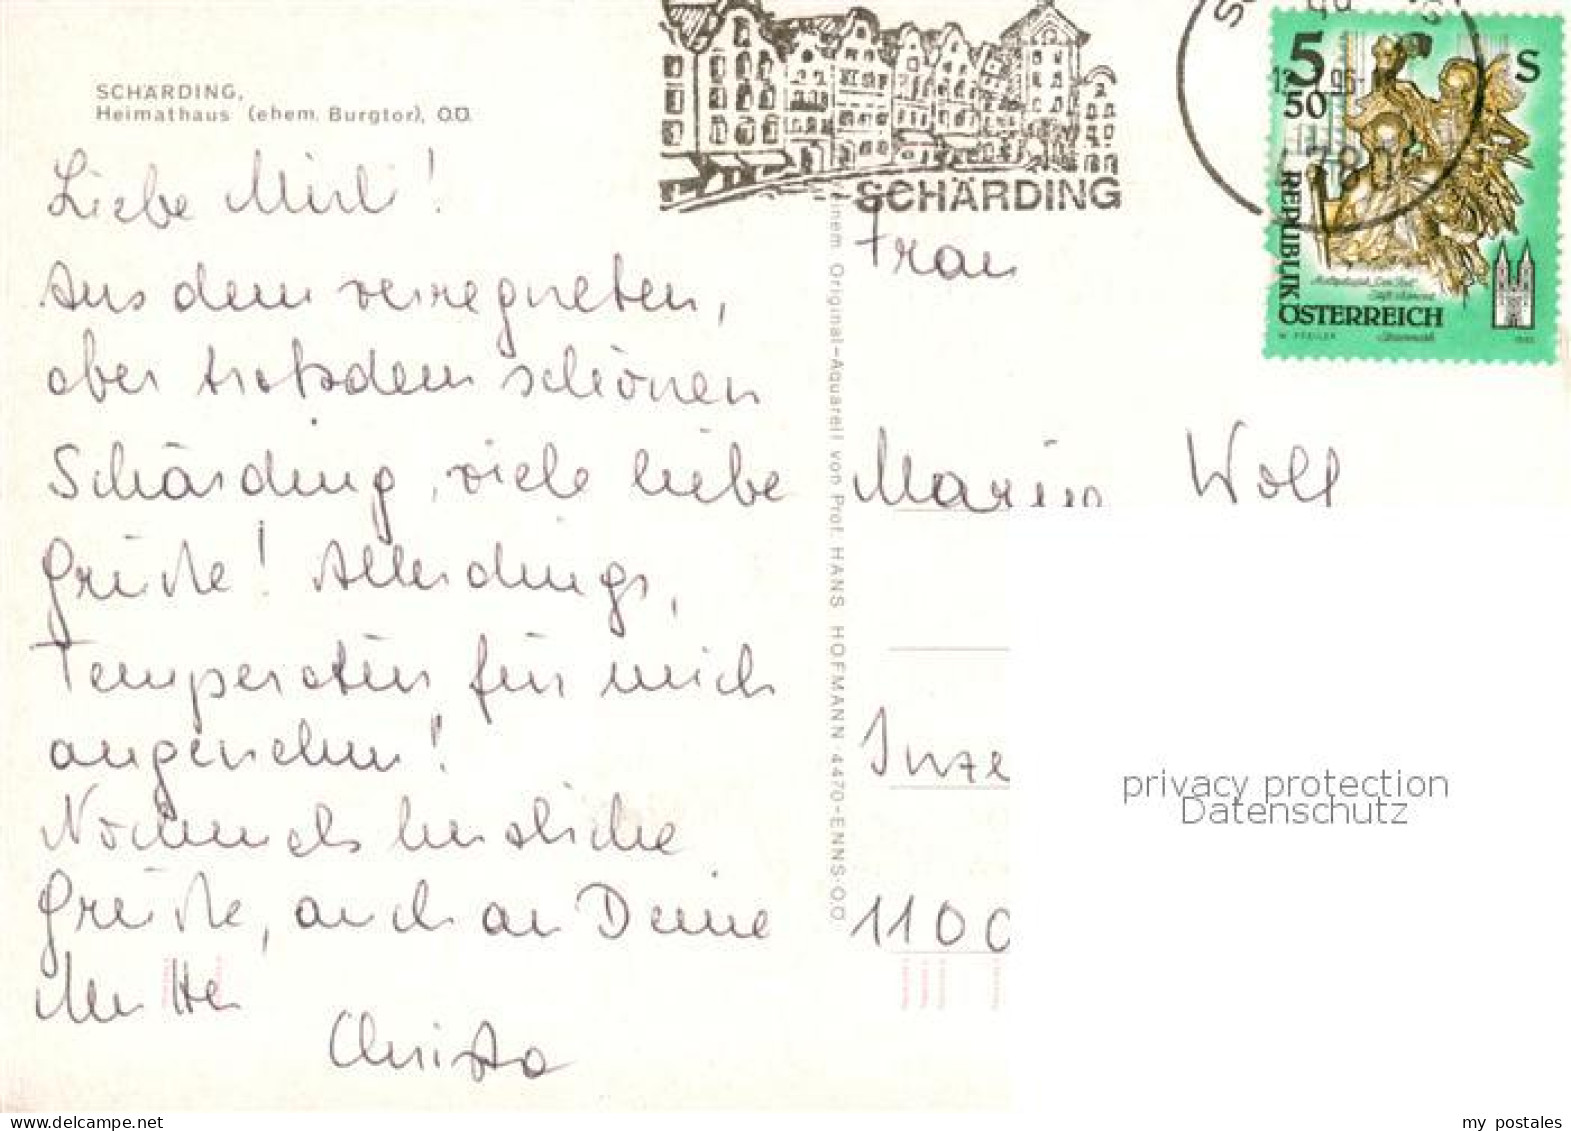 SCHÄRDING,
Heimathaus (ehem. Burgtor), O.Ö.
Liebe Mirli!
Aus dem verregneten,
aber trotzdem schönen
Schärding, viele liebe
Grüße! Allerdings,
Temperatur für mich
angenehm!
Nochmals herzliche
Grüße, auch an Deine
Mutter
Christa
einem Original-Aquarell von Prof. HANS HOFMANN · 4470-ENNS·O.Ö.
SCHÄRDING
5 S
50
4780
REPUBLIK
ÖSTERREICH
Frau
Wolf
1100
privacy protection
Datenschutz
my postales